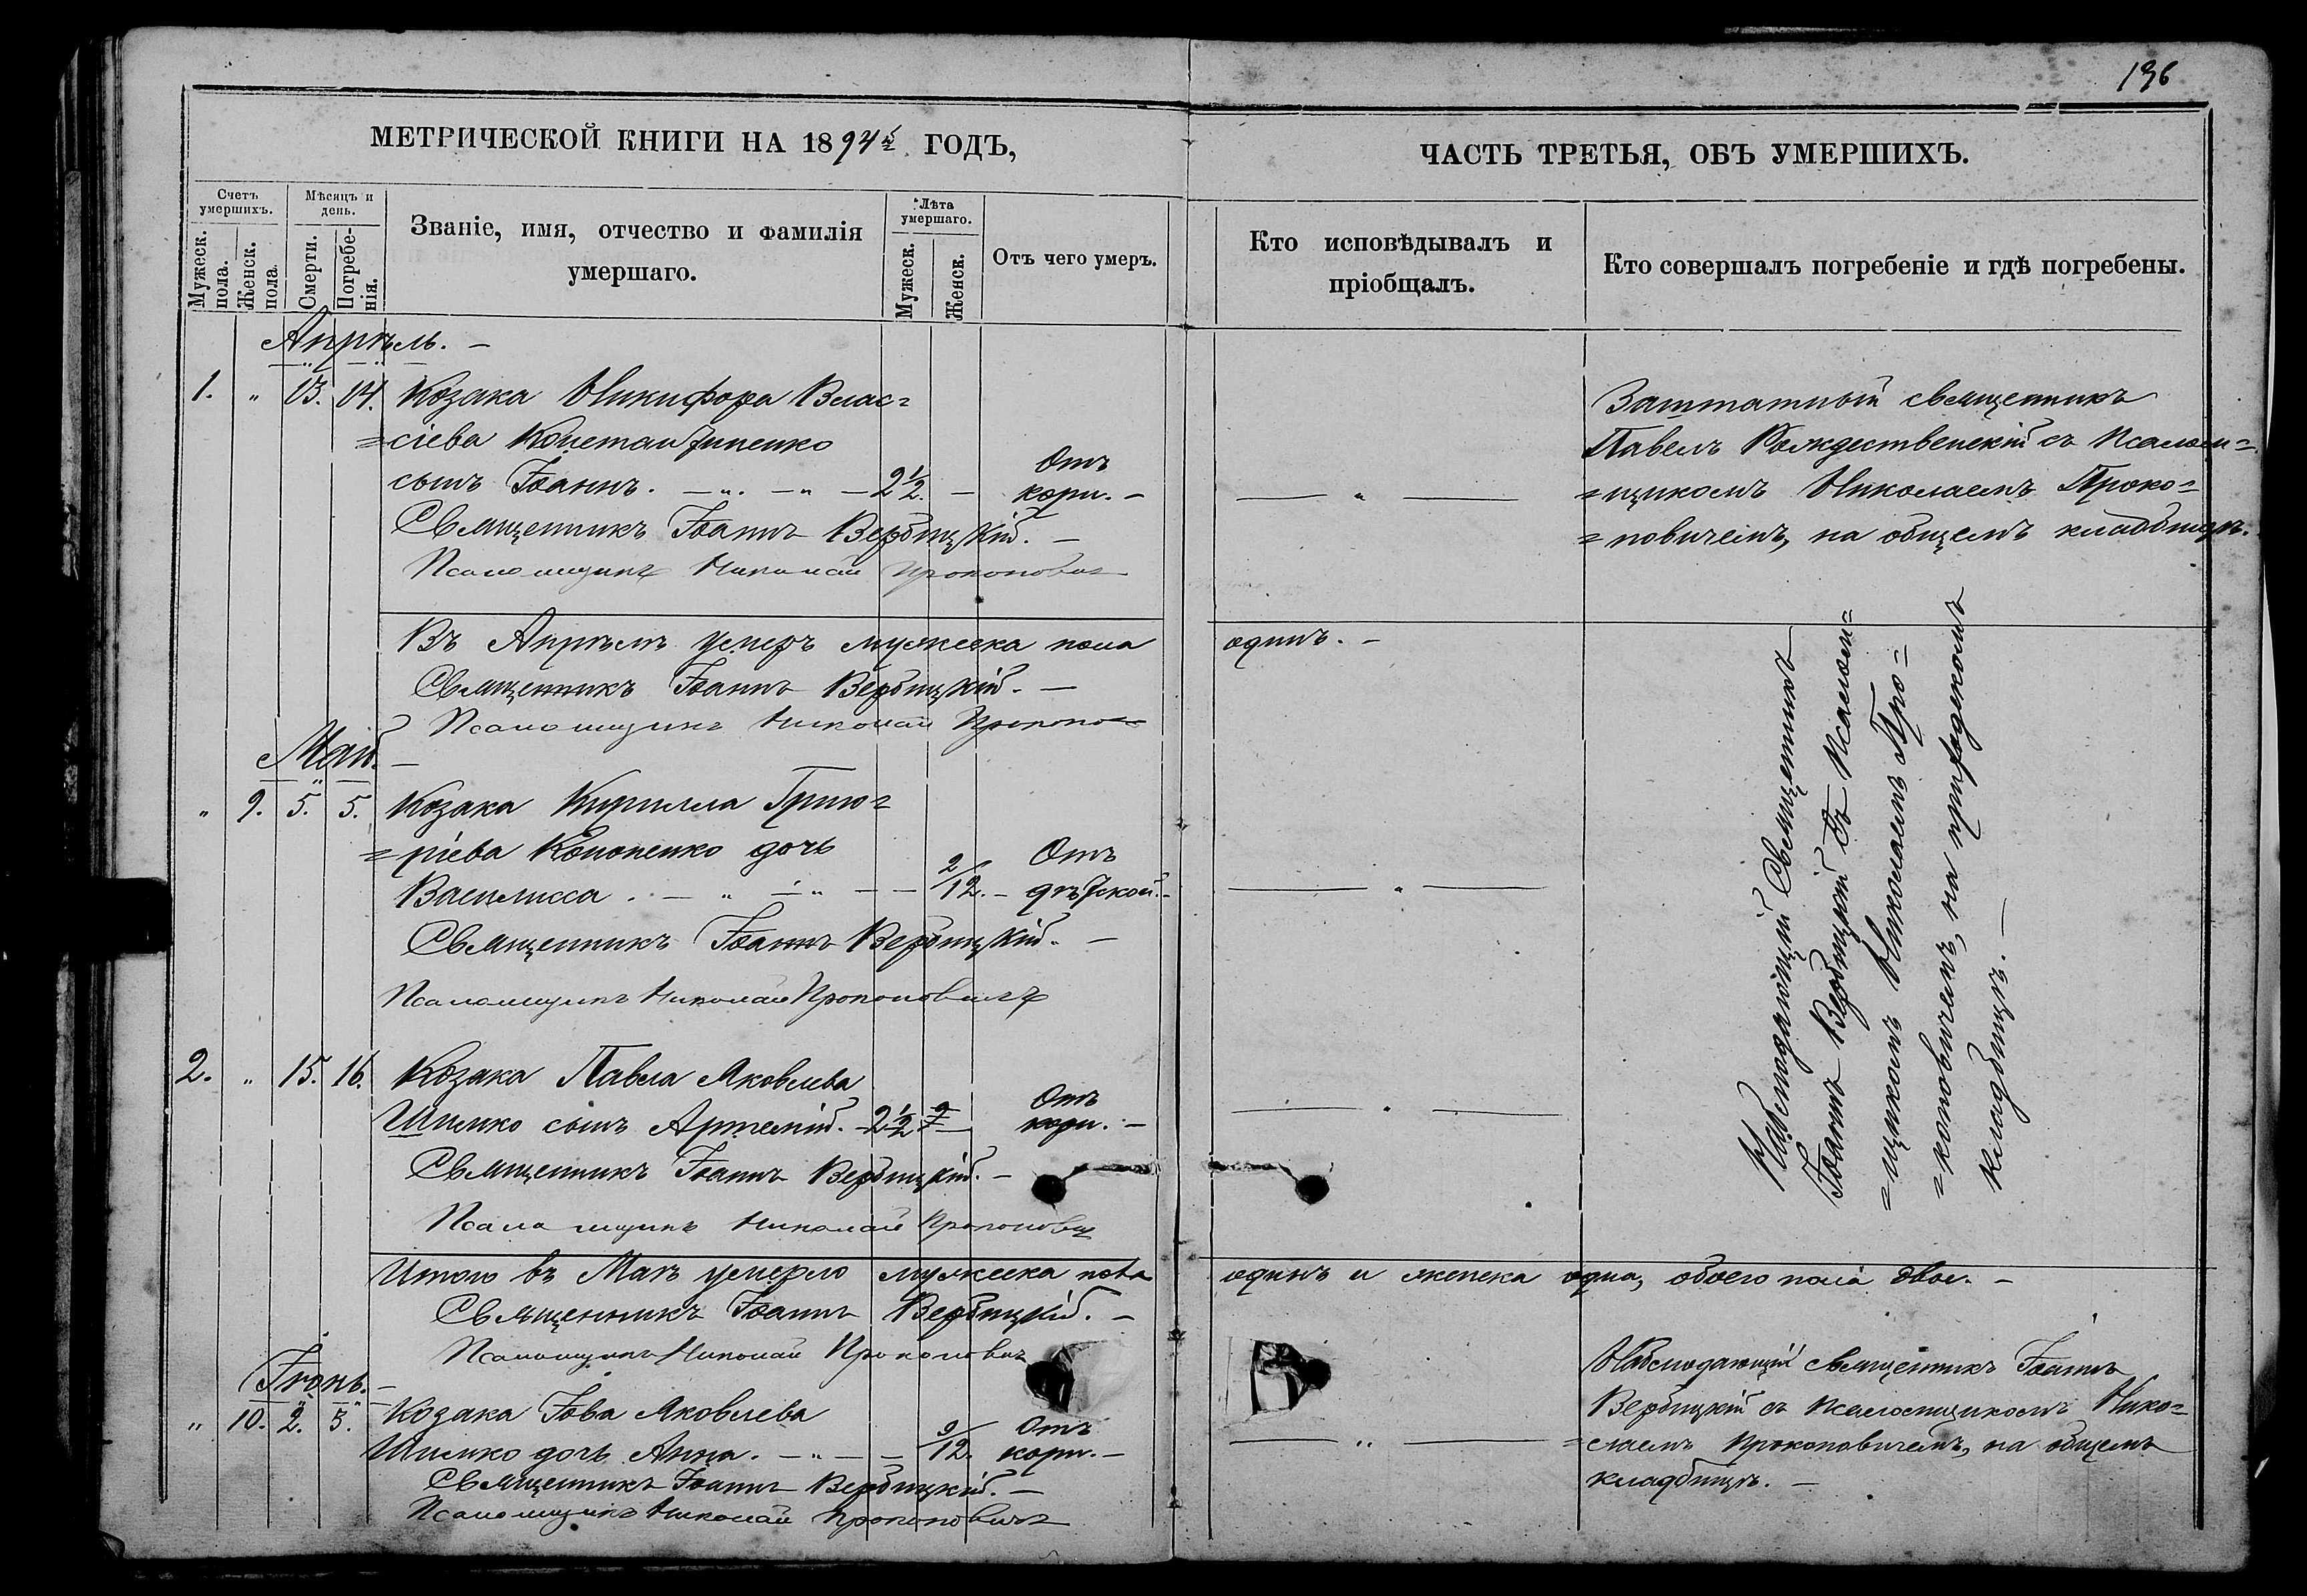 136
МЕТРИЧЕСКОЙ КНИГИ НА 1894й ГОДЪ,
ЧАСТЬ ТРЕТЬЯ, ОБЪ УМЕРШИХЪ.
Счетъ умершихъ.
Мужеск. пола.
Женск. пола.
Мѣсяцъ и день.
Смерти.
Погребе-
нія.
Званіе, имя, отчество и фамилія
умершаго.
Лѣта умершаго.
Мужеск.
Женск.
Отъ чего умеръ.
Кто исповѣдывалъ и
пріобщалъ.
Кто совершалъ погребеніе и гдѣ погребены.
Апрѣль. —
1. " 13. 14. Козака Никифора Влас=
=сіева Константиненко
сынъ Іоаннъ. — " — " — 2 1/2. — Отъ
кори. —
Священникъ Іоаннъ Вербицкій. —
Псаломщикъ Николай Прокопович
— " —
Заштатный священникъ
Павелъ Рождественскій съ псалом=
=щикомъ Николаемъ Проко=
=повичемъ, на общемъ кладбищѣ.
Въ Апрѣлѣ умеръ мужеска пола одинъ. —
Священникъ Іоаннъ Вербицкій. —
Псаломщикъ Николай
Май. —
" 9. 5. 5. Козака Кирилла Григо=
=ріева Кононенко дочь
Василисса. — " — " — — 2/12. — Отъ
дѣтской. —
Священникъ Іоаннъ Вербицкій. —
Псаломщикъ Николай Прокоповичъ
— " —
2. " 15. 16. Козака Павла Яковлева
Шилко сынъ Артемій. — 2 1/2 — Отъ
кори. —
Священникъ Іоаннъ Вербицкій. —
Псаломщикъ Николай Прокопович
— " —
Наблюдающій Священникъ
Іоаннъ Вербицкій съ Псалом=
=щикомъ Николаемъ Про=
=коповичемъ, на приходскомъ
кладбищѣ. —
Итого въ Маѣ умерло мужеска пола одинъ и женска одна, обоего пола двое. —
Священникъ Іоаннъ Вербицкій. —
Псаломщикъ Николай Прокопович
Іюнь. —
" 10. 2. 3. Козака Іова Яковлева
Шилко дочь Анна. — " — — 9/12. Отъ
кори. —
Священникъ Іоаннъ Вербицкій. —
Псаломщикъ Николай Прокоповичъ
— " —
Наблюдающій священникъ Іоаннъ
Вербицкій съ псаломщикомъ Нико=
=лаемъ Прокоповичемъ, на общемъ
кладбищѣ. —